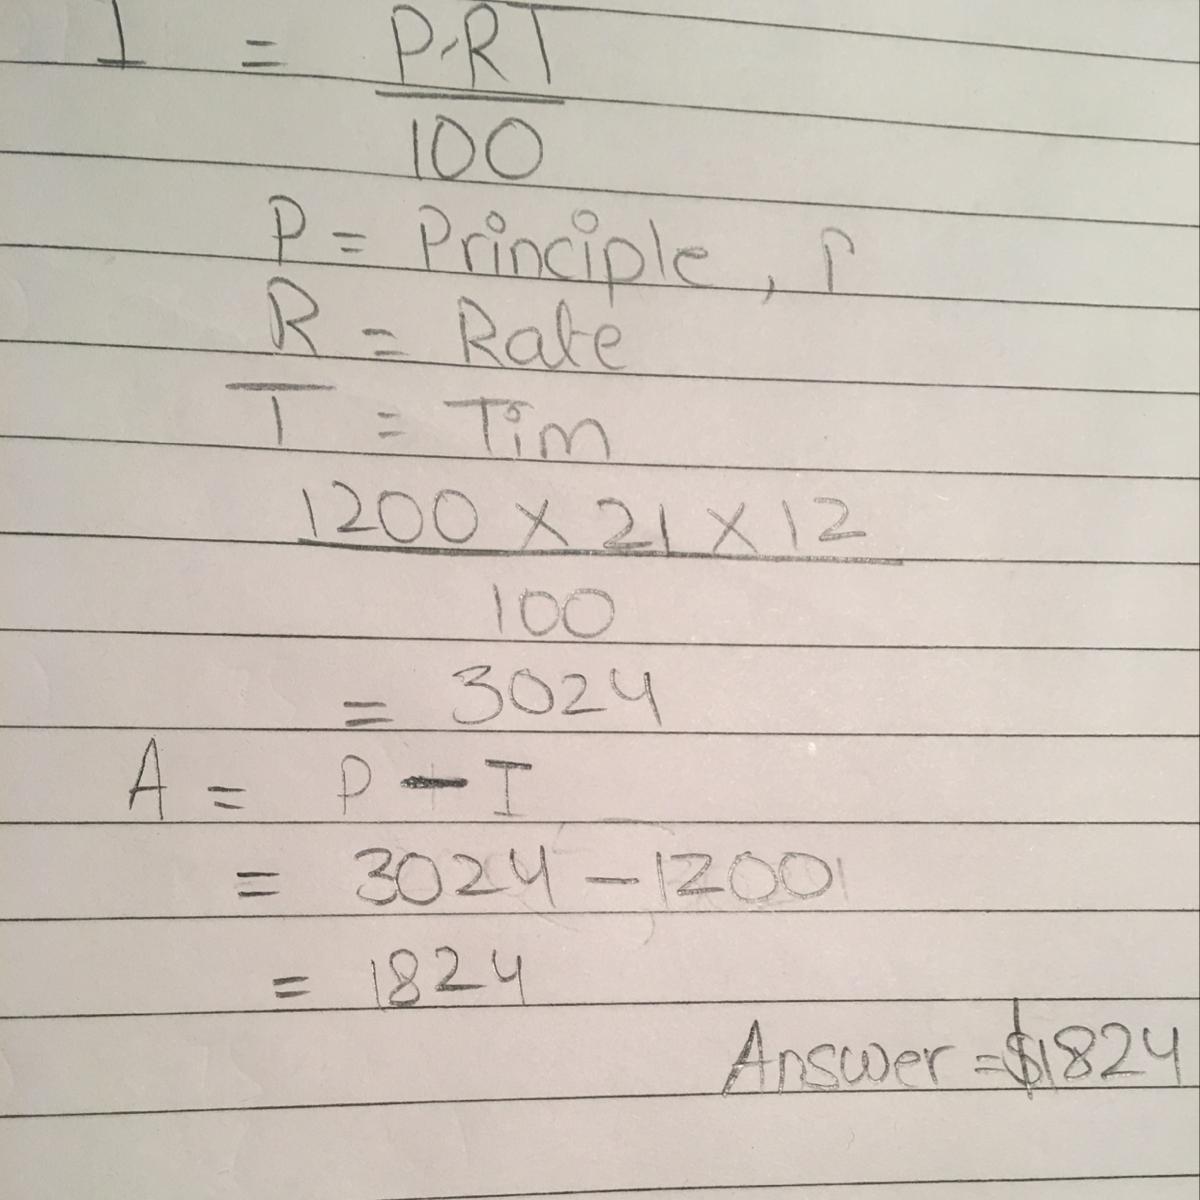 I = P.RT
100
P = Principle,
R = Rate
T = Tim
1200 x 21 x 12
100
= 3024
A = P - I
= 3024 - 1200
= 1824
Answer = $1824